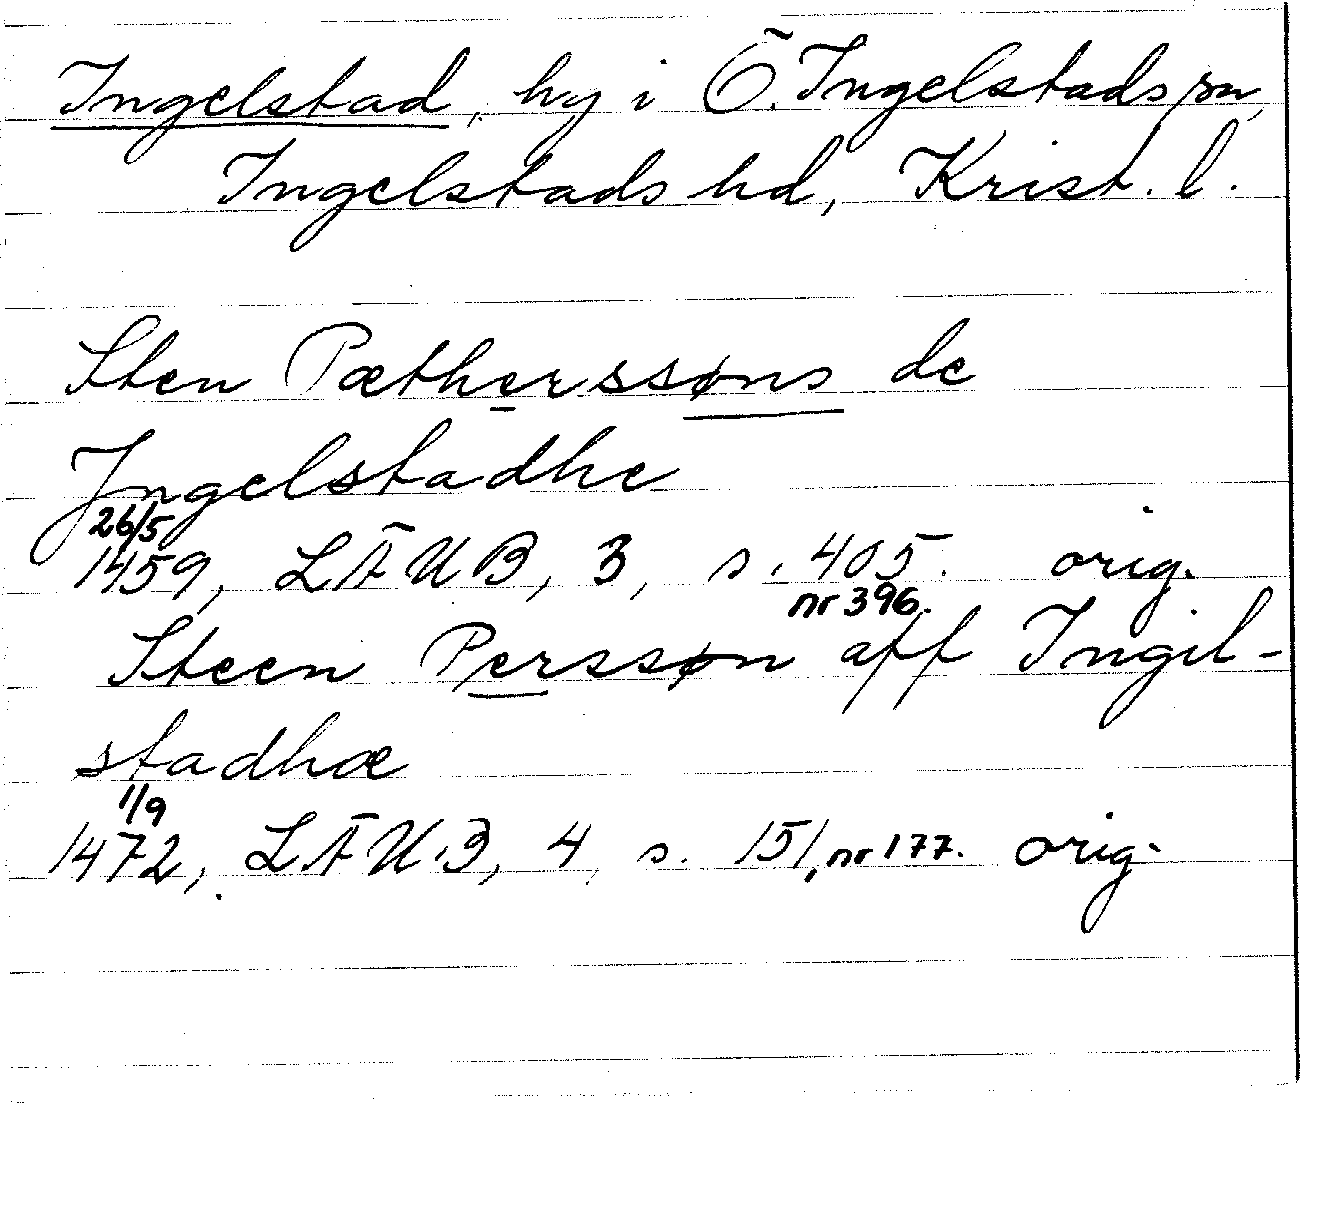 Ingelstad, by i Ö. Ingelstads sn,
Ingelstads hd, Krist. l.
Sten Pætherssøns de
Jngelstadhe
26/5
1459, LÄUB, 3, s. 405. orig.
nr 396.
Steen Perssøn aff Ingil-
stadhæ
1/9
1472, LÄUB, 4, s. 151, nr 177. orig.